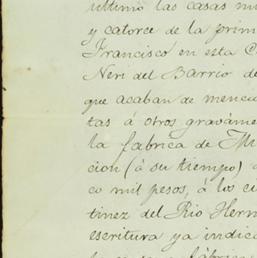 ultimo las casas nú
y catorce de la prim
Francisco en esta C
Neri del Barrio de
que acaban de mencio
tas á otros graváme
la fabrica de Mi
cion (á su tiempo)
co mil pesos, á los cu
tinez del Rio Herm
escritura ya indica